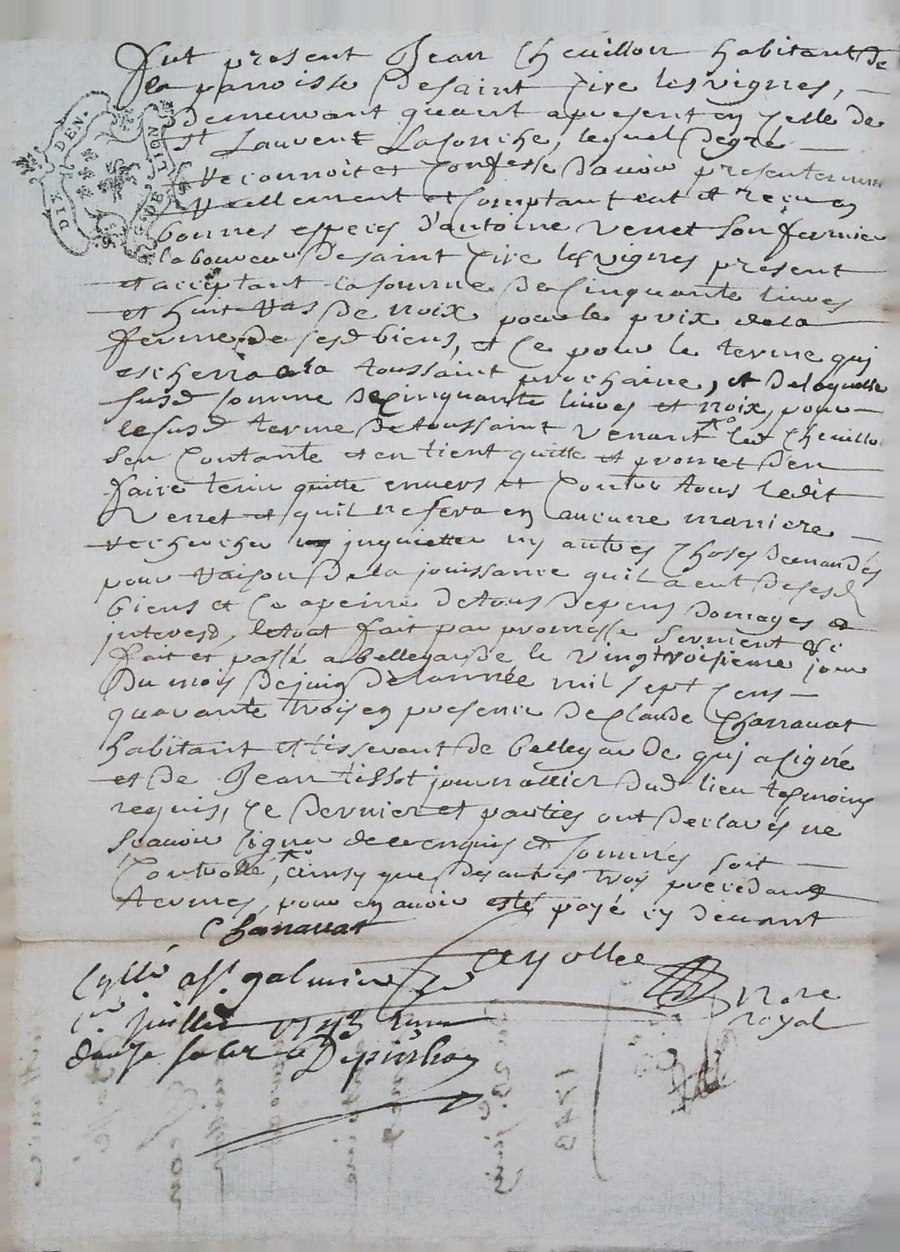 fut present Jean Chevillon habitant de
la parroisse de saint Cire les vignes,
demeurant quant apresent en celle de
St Laurent Laconche, lequel degré
reconnoit et confesse d'avoir presentement
reellement et comptant eut et reçu en
bonnes especes d'antoine verret son fermier
laboureur de saint Cire les vignes present
et acceptant la somme de cinquante livres
et huit ras de noix pour le prix de la
ferme de sesd biens, et ce pour le terme quj
escherra a la toussaint prochaine, et de laquelle
susd somme de cinquante livres et noix, pour
le susd terme de toussaint venant led Chevillon
s'en contante et en tient quitte et promet d'en
faire tenir quitte envers et contre tous ledit
verret et qu'il ne sera en aucune maniere
recherché ny jnquietté ny autres choses demandés
pour raison de la jouissance qu'il a eut de sesd
biens et ce a peine de tous depens domages et
jnterests, le tout fait par promesse serment &c
fait et passé a bellegarde le vingtroisieme jour
du mois de juin de l'année mil sept cens
quarante trois en presence de Claude Charravat
habitant et tisserant de bellegarde quj a signé
et de Jean tissot journallier dud lieu tesmoins
requis, ce dernier et parties ont declarés ne
sçavoir signer de ce enquis et sommés soit
Controllé, ainsy que des autres trois precedans
termes, pour en avoir esté payé cy devant
Charravat
ayollee
nore
royal
Cllé a St galmier le
1er juillet 1743 Reçu
douze sols
DIX DEN.
DE LION
1743